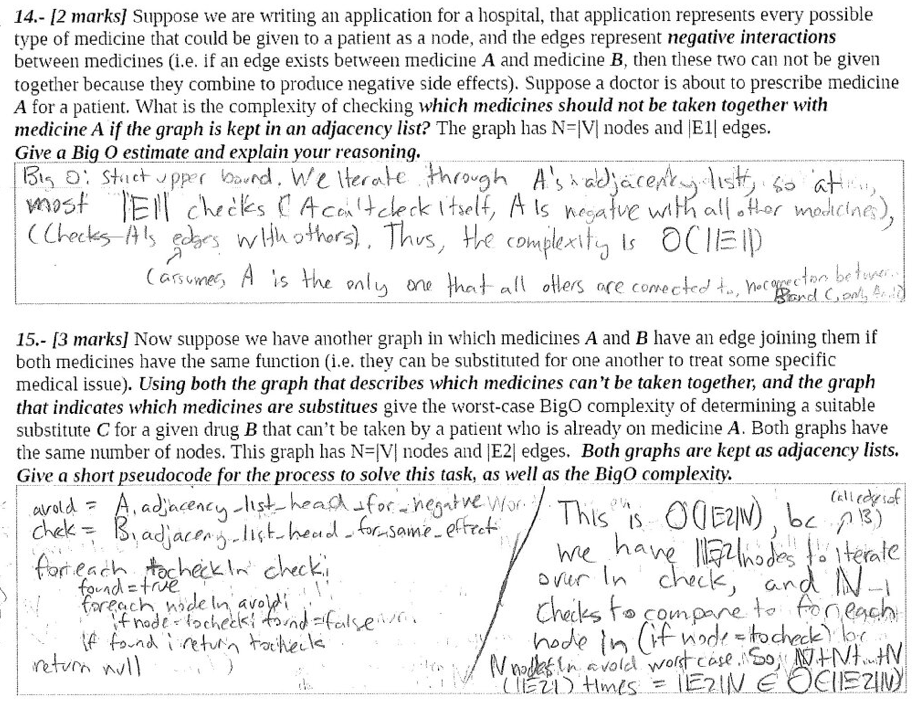 14.- [2 marks] Suppose we are writing an application for a hospital, that application represents every possible
type of medicine that could be given to a patient as a node, and the edges represent negative interactions
between medicines (i.e. if an edge exists between medicine A and medicine B, then these two can not be given
together because they combine to produce negative side effects). Suppose a doctor is about to prescribe medicine
A for a patient. What is the complexity of checking which medicines should not be taken together with
medicine A if the graph is kept in an adjacency list? The graph has N=|V| nodes and |E1| edges.
Give a Big O estimate and explain your reasoning.
Big O: strict upper bound. We iterate through A's adjacency list, so at
most |E1| checks (A can't check itself, A is negatve with all other modicines),
(checks A's edges with others). Thus, the complexity is O(|E1|)
(assumes A is the only one that all others are connected to, no connection between
B and C, only A
15.- [3 marks] Now suppose we have another graph in which medicines A and B have an edge joining them if
both medicines have the same function (i.e. they can be substituted for one another to treat some specific
medical issue). Using both the graph that describes which medicines can't be taken together, and the graph
that indicates which medicines are substitues give the worst-case BigO complexity of determining a suitable
substitute C for a given drug B that can't be taken by a patient who is already on medicine A. Both graphs have
the same number of nodes. This graph has N=|V| nodes and |E2| edges. Both graphs are kept as adjacency lists.
Give a short pseudocode for the process to solve this task, as well as the BigO complexity.
avoid = A.adjacency_list_head_for_negatve
chek = B.adjaceny_list_head_for_same_effect
for each tocheck in check:
found = true
foreach node in avoid:
if node = tocheck: found = false
if found: return tocheck
return null
(all edges of
This is O(|E2|N), bc B)
we have |E2| nodes to iterate
over in check, and N-1
checks to compare to foreach
node in (if node = tocheck) bc
N nodes in avoid worst case. So, N+N+...+N
(|E2|) times = |E2|N ∈ O(|E2|N)